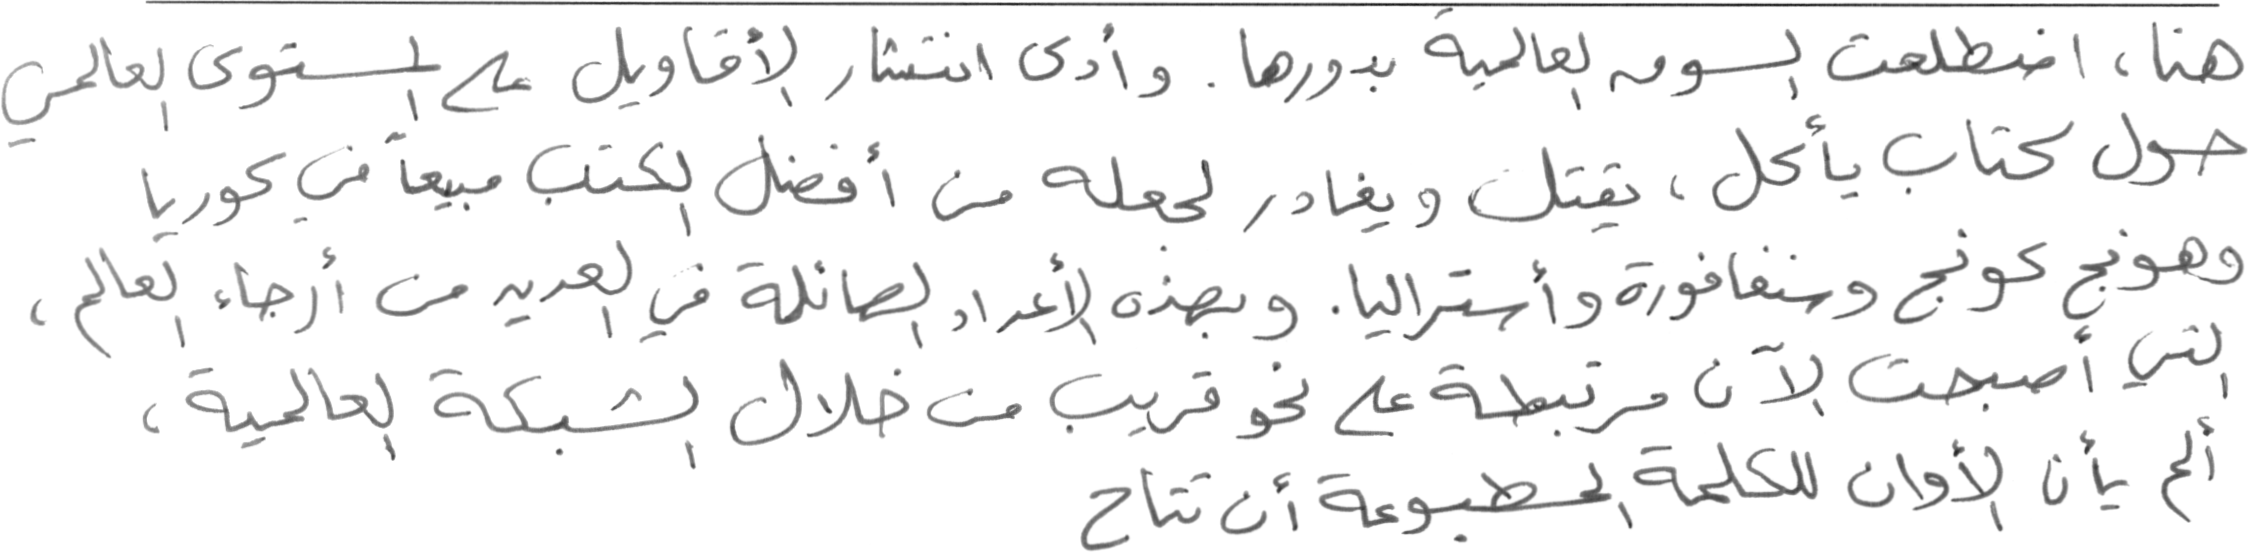 هنا، اضطلعت السوق العالمية بدورها. وأدى انتشار الأقاويل على المستوى العالمي
حول كتاب يأكل، يقتل ويغادر لجعله من أفضل الكتب مبيعاً في كوريا
وهونج كونج وسنغافورة وأستراليا. وبهذه الأعداد الهائلة في العديد من أرجاء العالم،
التي أصبحت الآن مرتبطة على نحو قريب من خلال الشبكة العالمية،
ألم يأن الأوان للكلمة المطبوعة أن تتاح